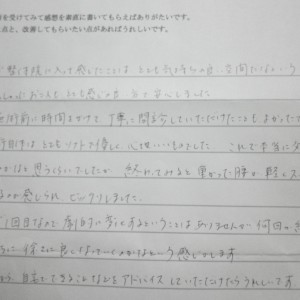 を受けてみて感想を素直に書いてもらえばありがたいです。
点と、改善してもらいたい点があればうれしいです。
整体院に入って感じたことは、とても気持ちの良い空間だなという
も感じの良い 安心しました
施術前に時間をかけて、丁寧に問診していただけたこともよかった
とてもソフトで優しく、心地いいものでした。これで本当に
かなと思うくらいでしたが、終わってみると重かった腰が軽く
るのが感じられ、ビックリしました。
1回目なので、劇的に変化するということはありませんが、何回か
徐々に良くなっていくのかなという感じがします
自宅でできることなどをアドバイスしていただけたらうれしいです